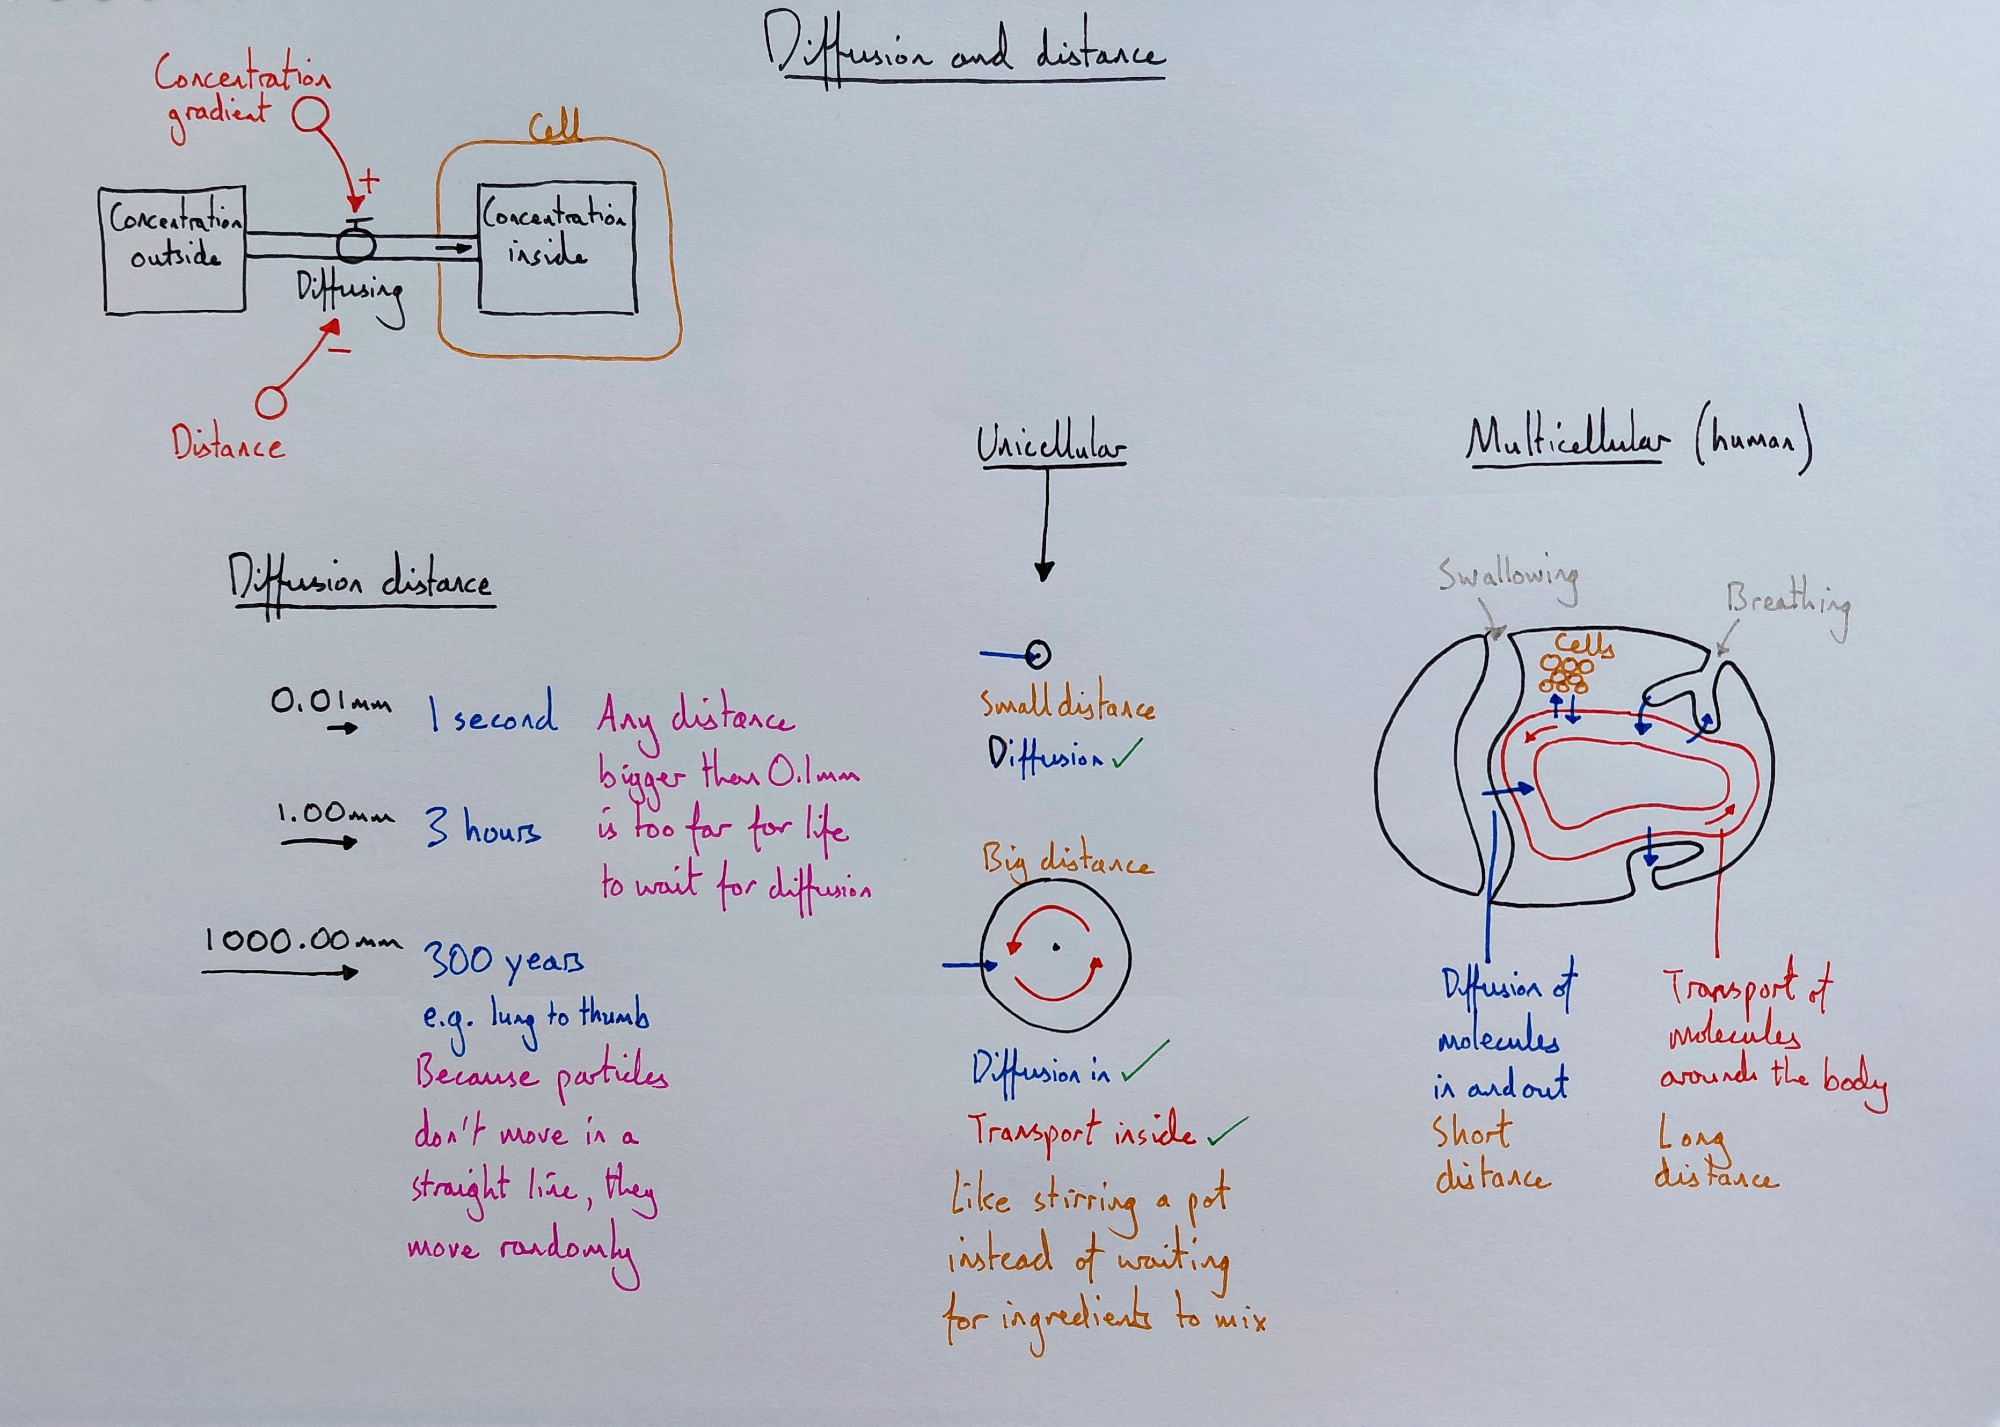 Diffusion and distance
Concentration
gradient
+
Cell
Concentration
outside
Concentration
inside
Diffusing
−
Distance
Diffusion distance
0.01mm
1 second
1.00mm
3 hours
1000.00mm
300 years
e.g. lung to thumb
Any distance
bigger than 0.1mm
is too far for life
to wait for diffusion
Because particles
don't move in a
straight line, they
move randomly
Unicellular
Small distance
Diffusion ✓
Big distance
Diffusion in ✓
Transport inside ✓
Like stirring a pot
instead of waiting
for ingredients to mix
Multicellular (human)
Swallowing
Breathing
Cells
Diffusion of
molecules
in and out
Short
distance
Transport of
molecules
around the body
Long
distance